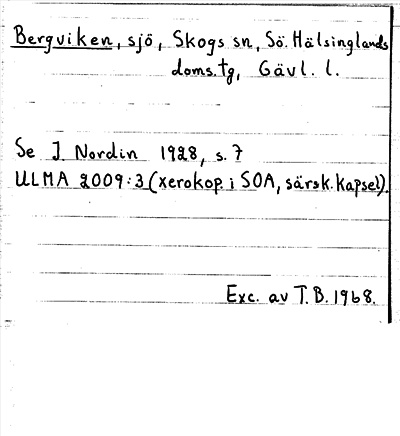 Bergviken, sjö, Skogs sn, Sö. Hälsinglands
doms.tg, Gävl. l.
Se J. Nordin 1928, s. 7
ULMA 2009:3 (xerokop. i SOA, särsk. kapsel).
Exc. av T.B. 1968.